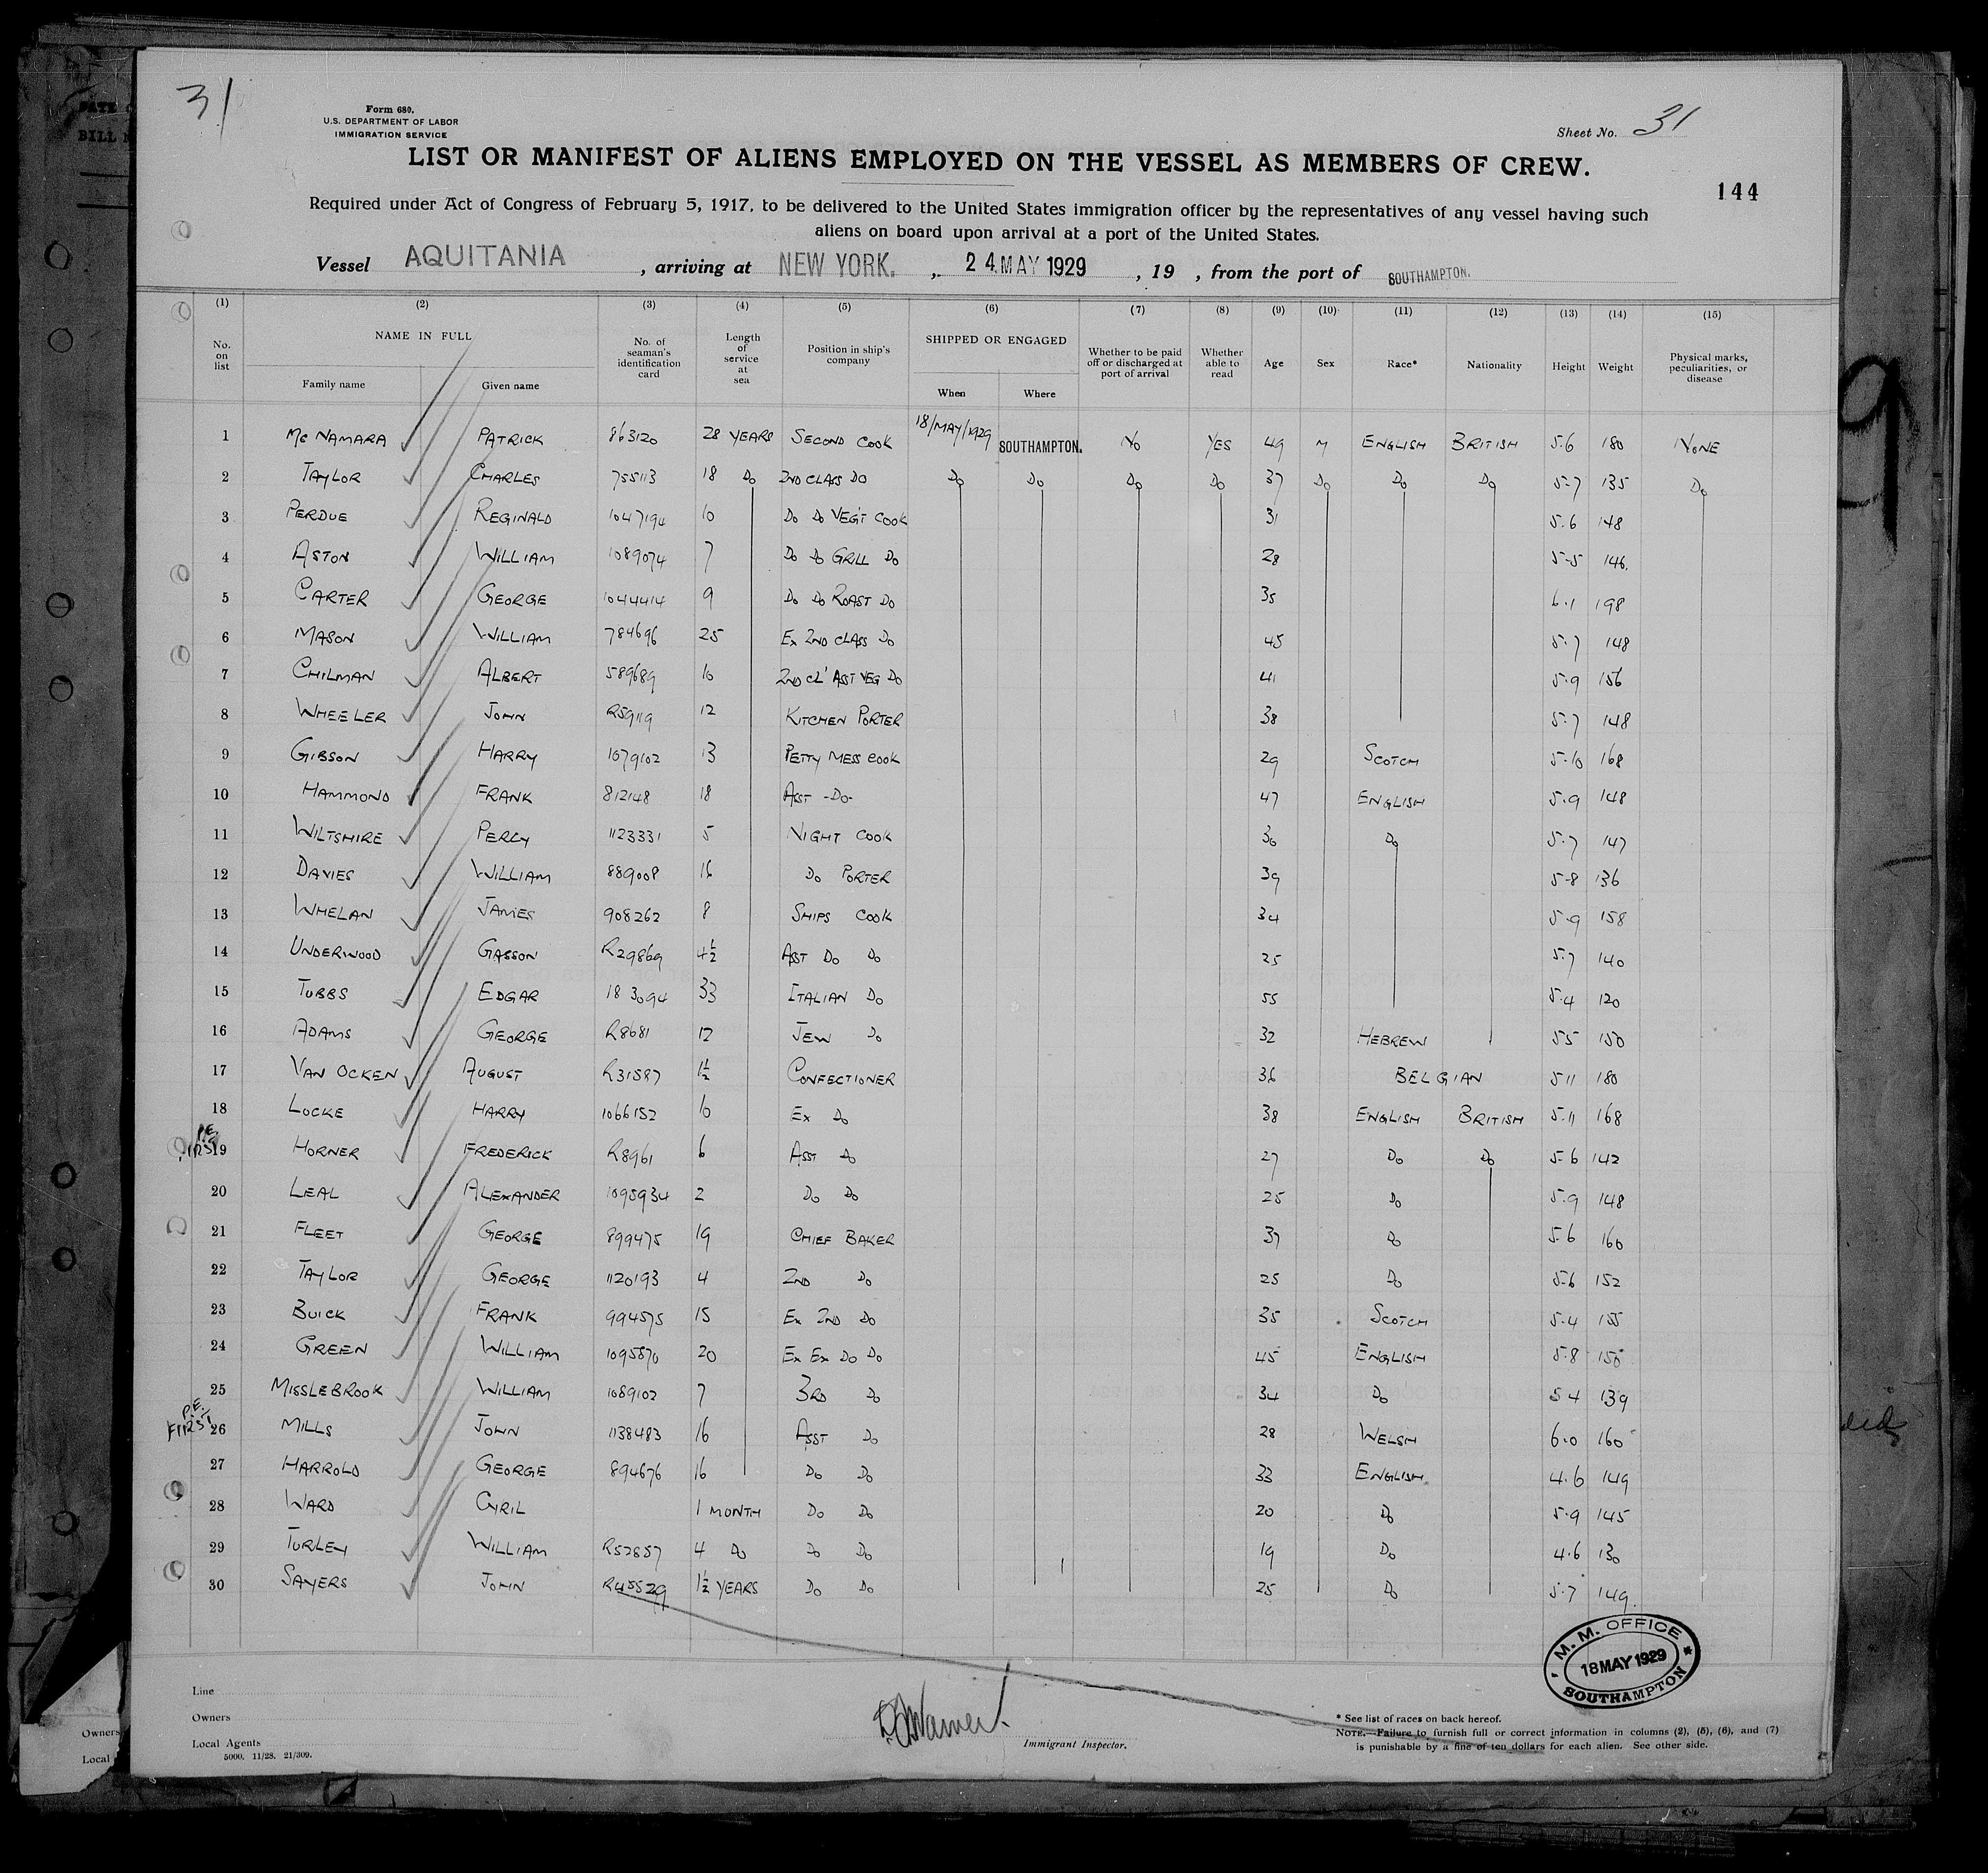 31
Form 680.
U.S. DEPARTMENT OF LABOR
IMMIGRATION SERVICE
Sheet No. 31
LIST OR MANIFEST OF ALIENS EMPLOYED ON THE VESSEL AS MEMBERS OF CREW.
144
Required under Act of Congress of February 5, 1917, to be delivered to the United States immigration officer by the representatives of any vessel having such
aliens on board upon arrival at a port of the United States.
Vessel AQUITANIA , arriving at NEW YORK. , 24 MAY 1929 , 19 , from the port of SOUTHAMPTON.
(1) (2) (3) (4) (5) (6) (7) (8) (9) (10) (11) (12) (13) (14) (15)
No. on list NAME IN FULL Family name Given name No. of seaman's identification card Length of service at sea Position in ship's company SHIPPED OR ENGAGED When Where Whether to be paid off or discharged at port of arrival Whether able to read Age Sex Race* Nationality Height Weight Physical marks, peculiarities, or disease
1 McNAMARA PATRICK 863120 28 YEARS SECOND COOK 18/MAY/1929 SOUTHAMPTON. NO YES 49 M ENGLISH BRITISH 5.6 180 NONE
2 TAYLOR CHARLES 755113 18 Do 2ND CLASS DO Do Do Do Do 37 Do Do Do 5-7 135 Do
3 PERDUE REGINALD 1047194 10 Do Do VEG'T COOK 31 5.6 148
4 ASTON WILLIAM 1089074 7 Do Do GRILL Do 28 5-5 146.
5 CARTER GEORGE 1044414 9 Do Do ROAST Do 35 6.1 198
6 MASON WILLIAM 784696 25 Ex 2ND CLASS Do 45 5.7 148
7 CHILMAN ALBERT 589689 10 2ND CL' ASST VEG Do 41 5.9 156
8 WHEELER JOHN R59119 12 KITCHEN PORTER 38 5.7 148
9 GIBSON HARRY 1079102 13 PETTY MESS COOK 29 SCOTCH 5.10 168
10 HAMMOND FRANK 812148 18 ASST -Do- 47 ENGLISH 5.9 148
11 WILTSHIRE PERCY 1123331 5 NIGHT COOK 30 Do 5.7 147
12 DAVIES WILLIAM 889008 16 Do PORTER 39 5-8 136
13 WHELAN JAMES 908262 8 SHIPS COOK 34 5.9 158
14 UNDERWOOD GASSON R29869 4½ ASST Do Do 25 5.7 140
15 TUBBS EDGAR 183094 33 ITALIAN Do 55 5.4 120
16 ADAMS GEORGE R8681 12 JEW Do 32 HEBREW 5 5 150
17 VAN OCKEN AUGUST R31587 1½ CONFECTIONER 36 BELGIAN 5 11 180
18 LOCKE HARRY 1066152 10 Ex Do 38 ENGLISH BRITISH 5.11 168
P.E.
19 HORNER FREDERICK R8961 6 ASST Do 27 Do Do 5.6 142
20 LEAL ALEXANDER 1095934 2 Do Do 25 Do 5.9 148
21 FLEET GEORGE 899475 19 CHIEF BAKER 37 Do 5.6 160
22 TAYLOR GEORGE 1120193 4 2ND Do 25 Do 5.6 152
23 BUICK FRANK 994575 15 Ex 2ND Do 35 SCOTCH 5.4 155
24 GREEN WILLIAM 1095870 20 Ex Ex Do Do 45 ENGLISH 5.8 150
25 MISSLEBROOK WILLIAM 1089102 7 3RD Do 34 Do 5 4 139
P.E.
FIRST
26 MILLS JOHN 1138483 16 ASST Do 28 WELSH 6.0 160
27 HARROLD GEORGE 894676 16 Do Do 33 ENGLISH. 4.6 149
28 WARD CYRIL 1 MONTH Do Do 20 Do 5.9 145
29 TURLEY WILLIAM R52857 4 Do Do Do 19 Do 4.6 130
30 SAYERS JOHN R45529 1½ YEARS Do Do 25 Do 5.7 149.
M. M. OFFICE
18 MAY 1929
SOUTHAMPTON
Line
Owners
Local Agents
5000. 11/28. 21/309.
Immigrant Inspector.
* See list of races on back hereof.
NOTE.—Failure to furnish full or correct information in columns (2), (5), (6), and (7)
is punishable by a fine of ten dollars for each alien. See other side.
Owners
Local